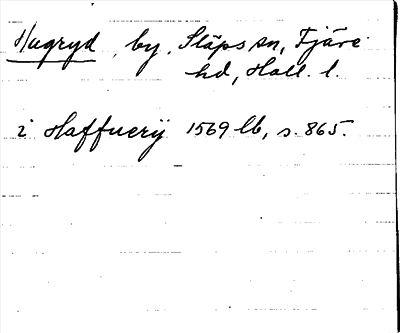 Hagryd, by, Släps sn, Fjäre
hd, Hall. l.
i Haffuerÿ 1569 lb, s. 865.